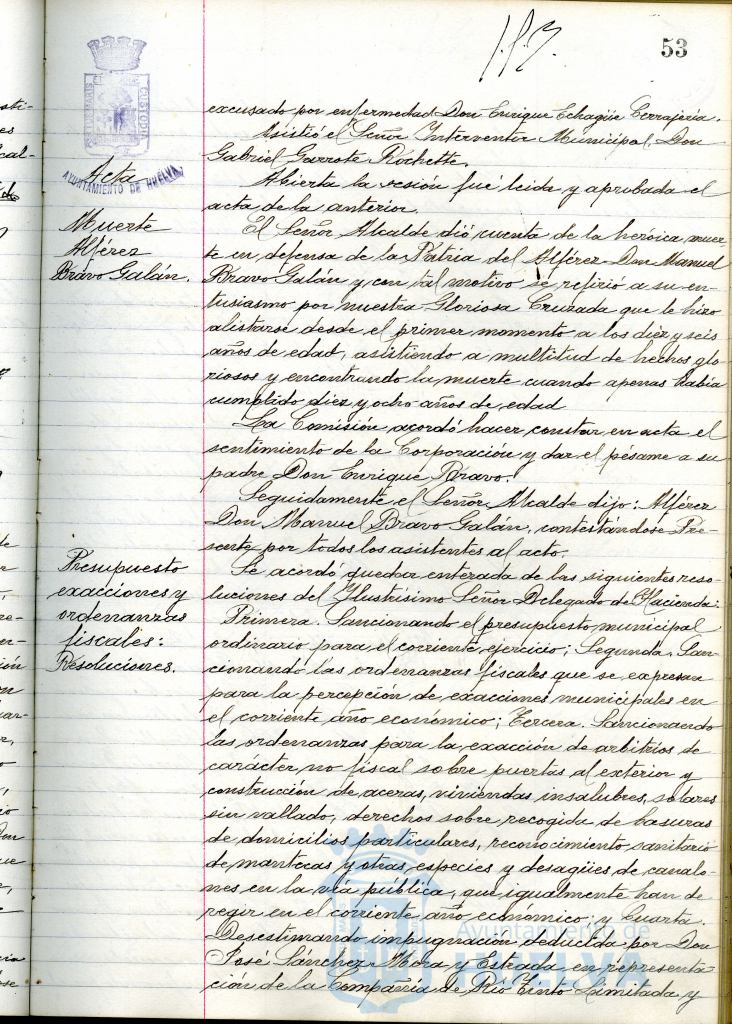 53
excusado por enfermedad Don Enrique Echagüe Cerrajería.
Asistió el Señor Interventor Municipal, Don
Gabriel Garrote Rochette.
Acta
AYUNTAMIENTO DE HUELVA
Abierta la sesión fué leida y aprobada el
acta de la anterior.
Muerte
Alférez
Bravo Galán.
El Señor Alcalde dió cuenta de la heróica muer
te en defensa de la Patria del Alférez Don Manuel
Bravo Galán y con tal motivo se refirió a su en-
tusiasmo por nuestra Gloriosa Cruzada que le hizo
alistarse desde el primer momento a los diez y seis
años de edad, asistiendo a multitud de hechos glo-
riosos y encontrando la muerte cuando apenas habia
cumplido diez y ocho años de edad
La Comisión acordó hacer constar en acta el
sentimiento de la Corporación y dar el pésame a su
padre Don Enrique Bravo.
Seguidamente el Señor Alcalde dijo: Alférez
Don Manuel Bravo Galán, contestándose Pre-
sente por todos los asistentes al acto.
Presupuesto
exacciones y
ordenanzas
fiscales:
Resoluciones.
Se acordó quedar enterada de las siguientes reso-
luciones del Ylustrisimo Señor Delegado de Hacienda:
Primera. Sancionando el presupuesto municipal
ordinario para el corriente ejercicio; Segunda. San-
cionando las ordenanzas fiscales que se expresan
para la percepción de exacciones municipales en
el corriente año economico; Tercera. Sancionando
las ordenanzas para la exacción de arbitrios de
carácter no fiscal sobre puertas al exterior y
construcción de aceras, viviendas insalubres, solares
sin vallado, derechos sobre recogida de basuras
de domicilios particulares, reconocimiento sanitario
de mantecas y otras especies y desagües de canalo-
nes en la via pública, que igualmente han de
regir en el corriente año economico; y Cuarta.
Desestimando impugnación deducida por Don
José Sánchez Mora y Estrada en representa-
ción de la Compañía de Rio Tinto Limitada y
Ayuntamiento de
HUELVA